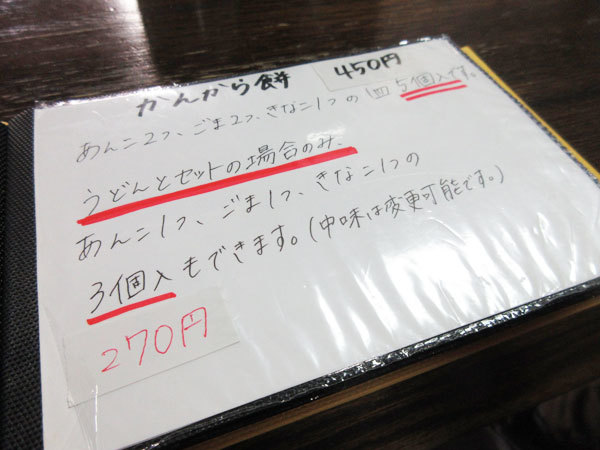 かんから餅 450円
あんこ2つ、ごま2つ、きなこ1つの1皿5個入です。
うどんとセットの場合のみ、
あんこ1つ、ごま1つ、きなこ1つの
3個入もできます。(中味は変更可能です。)
270円